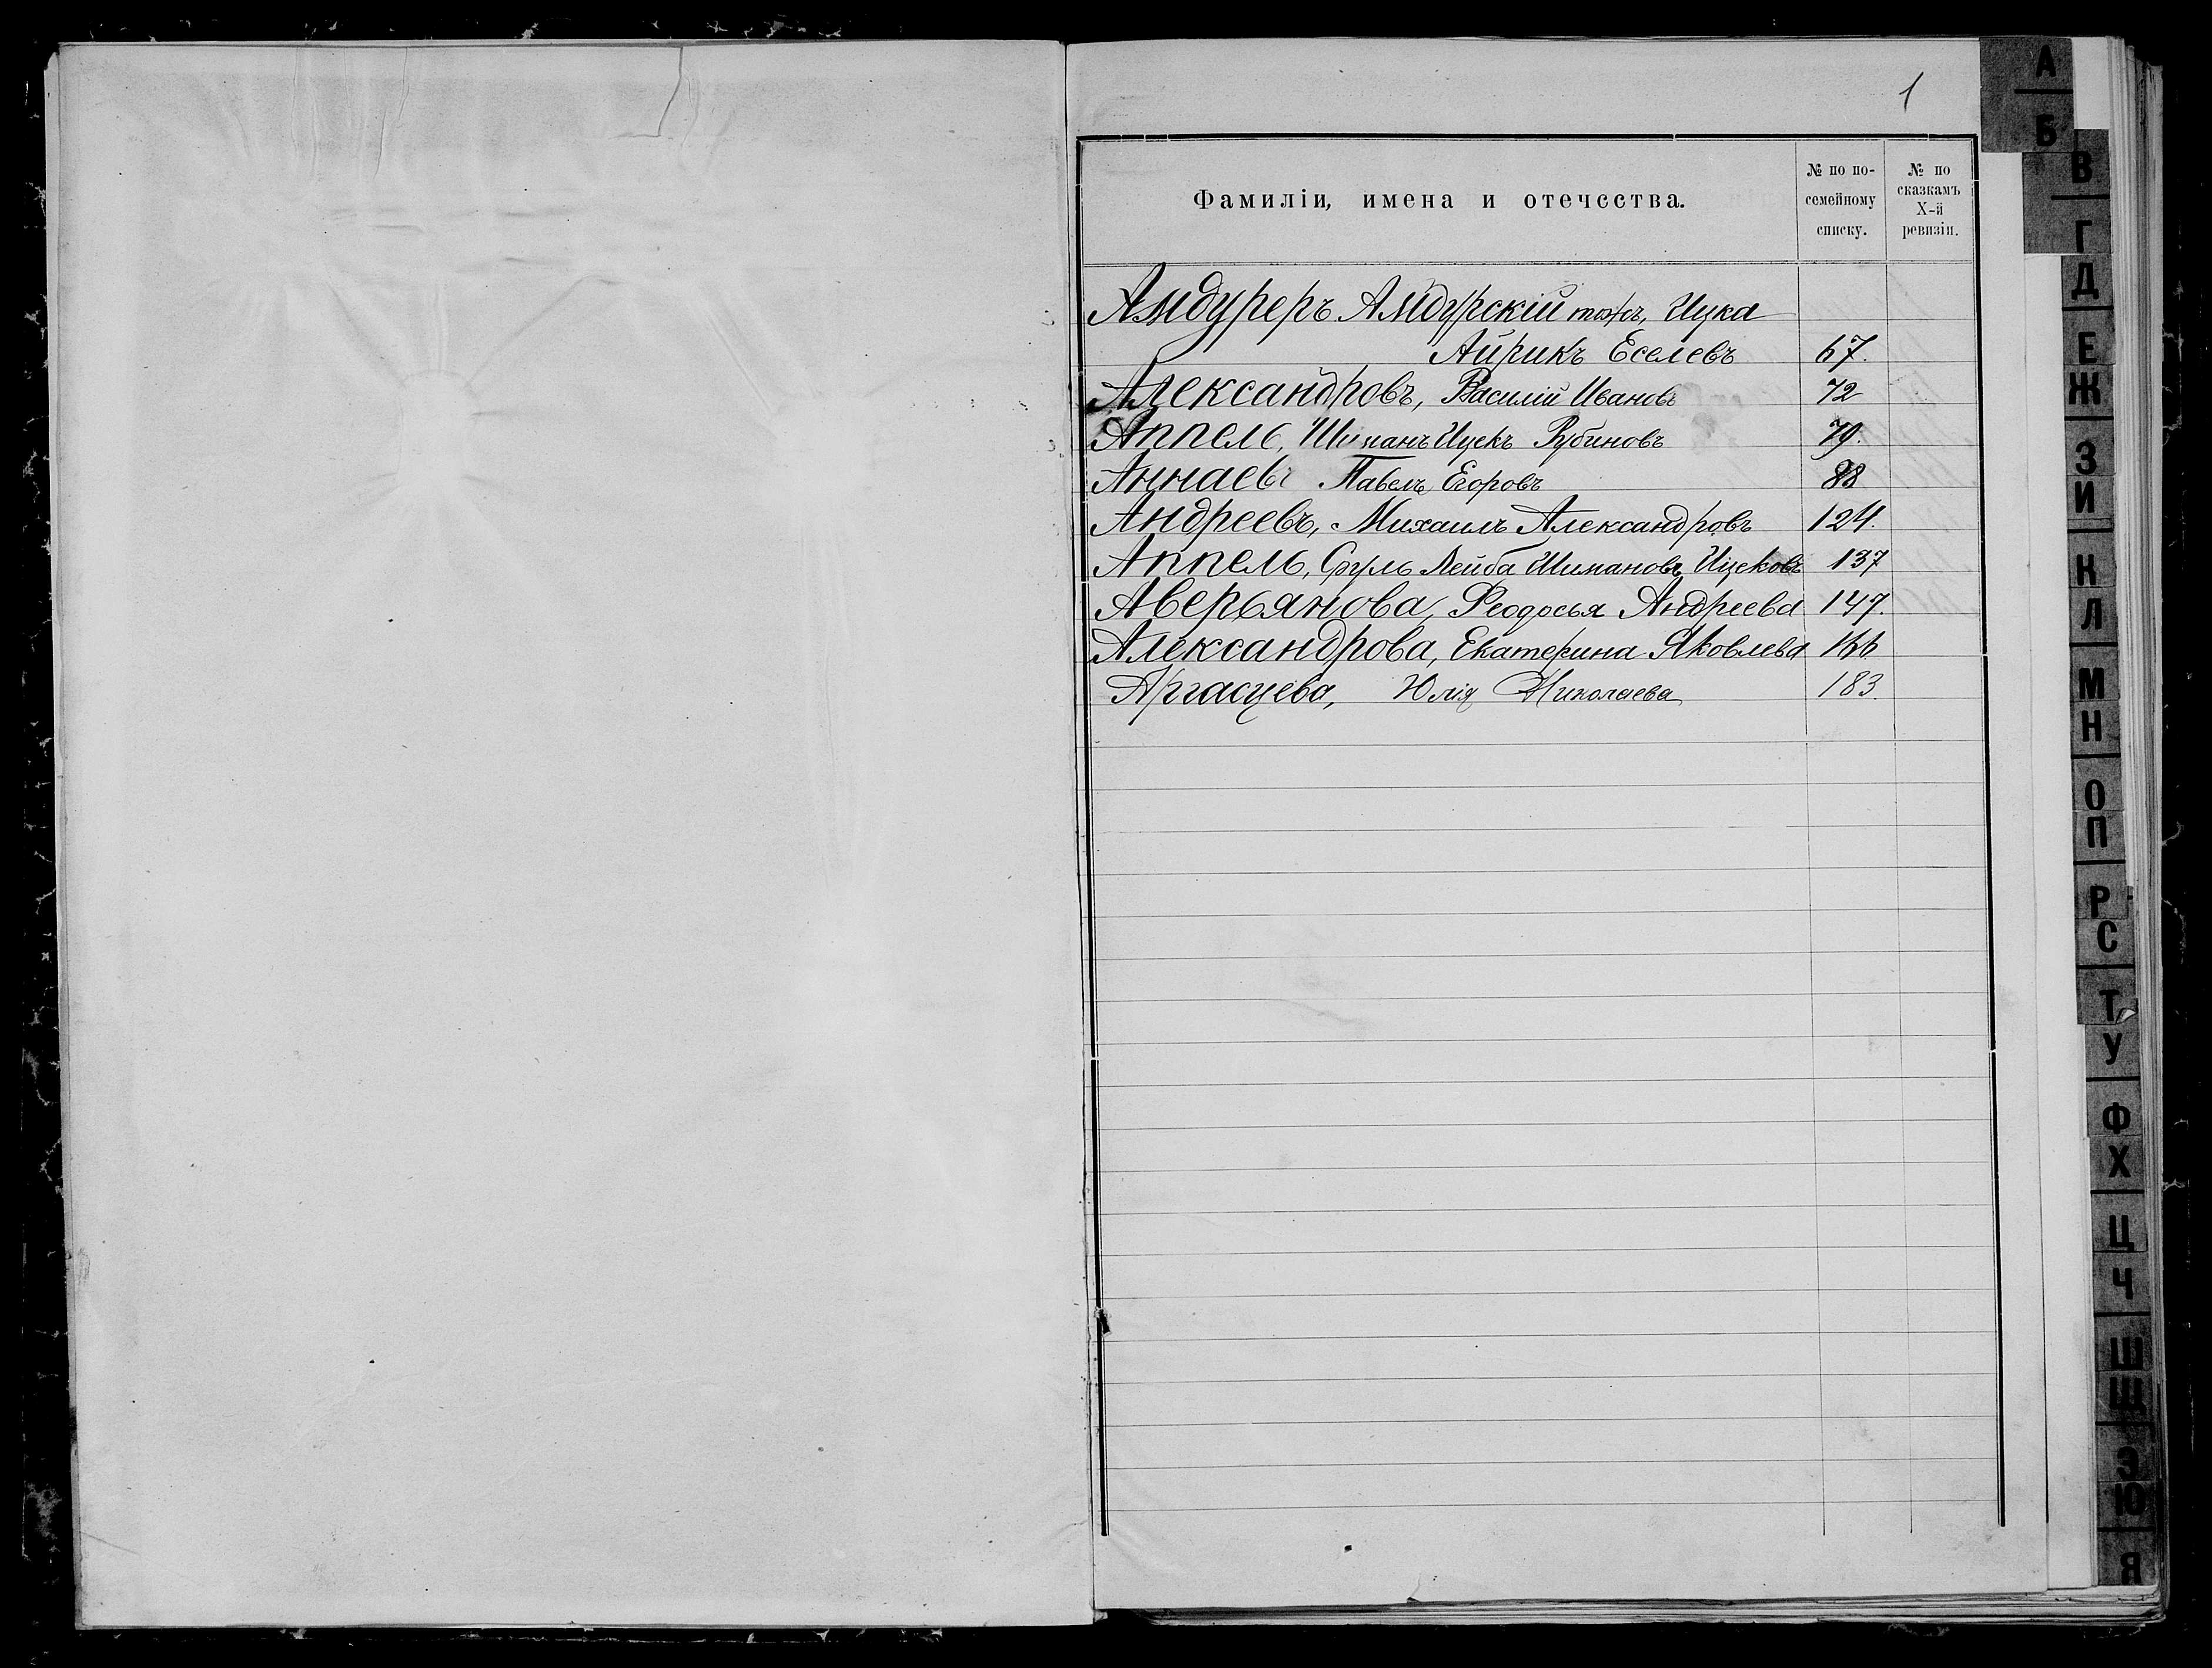 1
Фамиліи, имена и отечества.
№ по по-
семейному
списку.
№ по
сказкамъ
X-й
ревизіи.
Амдуреръ Амдурскій тожъ, Ицка
Айрикъ Еселевъ 67.
Александровъ, Василій Ивановъ 72
Аппель, Шиманъ Ицекъ Рубиновъ 79.
Аннаевъ Павелъ Егоровъ 88
Андреевъ, Михаилъ Александровъ 124.
Аппель, Сруль Лейба Шимановъ Ицековъ 137
Аверьянова, Феодосья Андреева 147.
Александрова, Екатерина Яковлева 166
Юлія Николаева 183.
А
Б
В
Г
Д
Е
Ж
З
И
К
Л
М
Н
О
П
Р
С
Т
У
Ф
Х
Ц
Ч
Ш
Щ
Э
Ю
Я